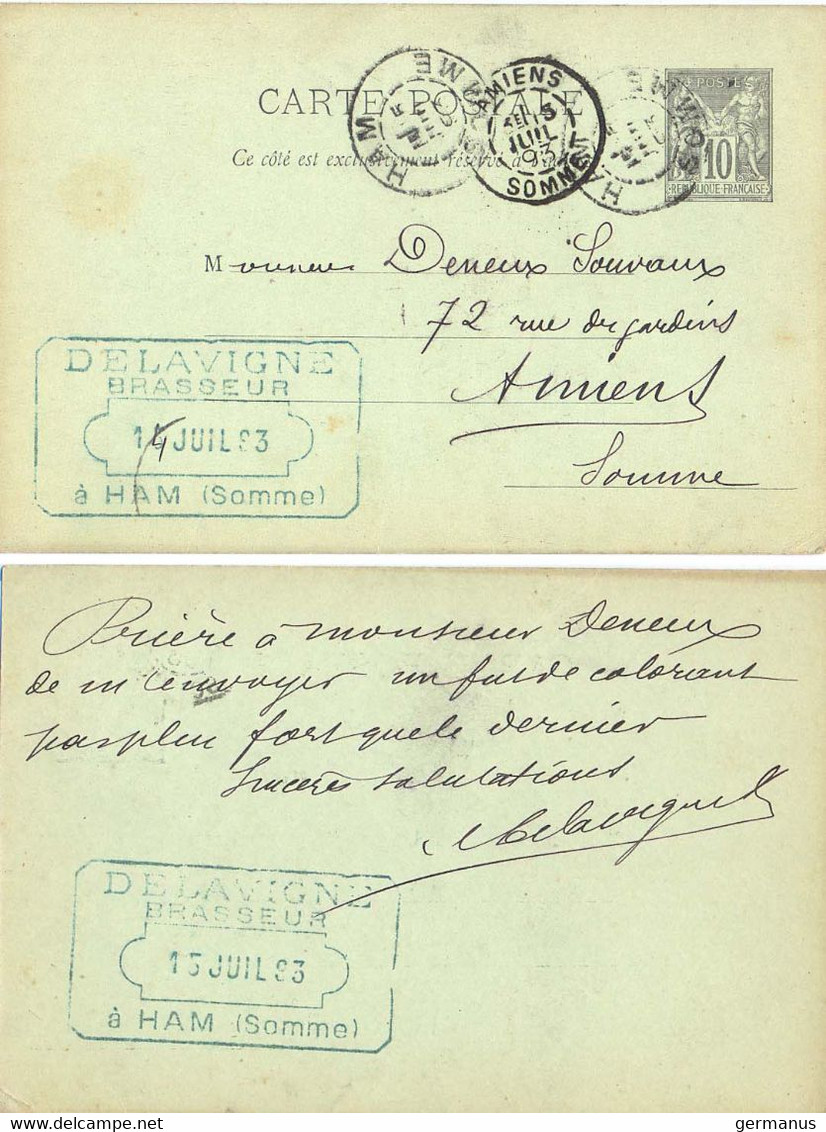 CARTE POSTALE
Ce côté est exclusivement réservé à
HAM
SOMME
AMIENS
15
JUIL
93
SOMME
HAM
SOMME
POSTE
10
REPUBLIQUE FRANÇAISE
Monsieur Deneux Souvaux
72 rue des jardins
Amiens
Somme
DELAVIGNE
BRASSEUR
14 JUIL 93
à HAM (Somme)
Prière à monsieur Deneux
de m'envoyer un fut de colorant
pas plus fort que le dernier
Sincères salutations
Delavigne
DELAVIGNE
BRASSEUR
15 JUIL 93
à HAM (Somme)
delcampe.net
germanus